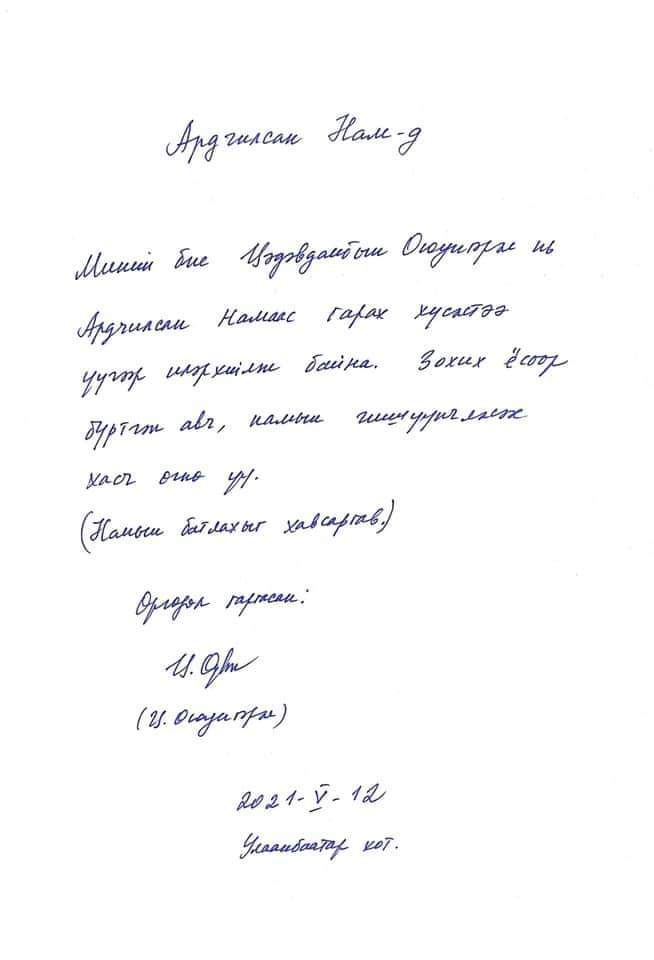 Ардчилсан Нам-д
Миний бие Цэдэвдамбын Оюунгэрэл нь
Ардчилсан Намаас гарах хүсэлтээ
үүгээр илэрхийлж байна. Зохих ёсоор
бүртгэж авч, намын гишүүнчлэлээс
хасч өгнө үү.
(Намын батлахыг хавсаргав.)
Өргөдөл гаргасан:
Ц.
(Ц. Оюунгэрэл)
2021-V-12
Улаанбаатар хот.